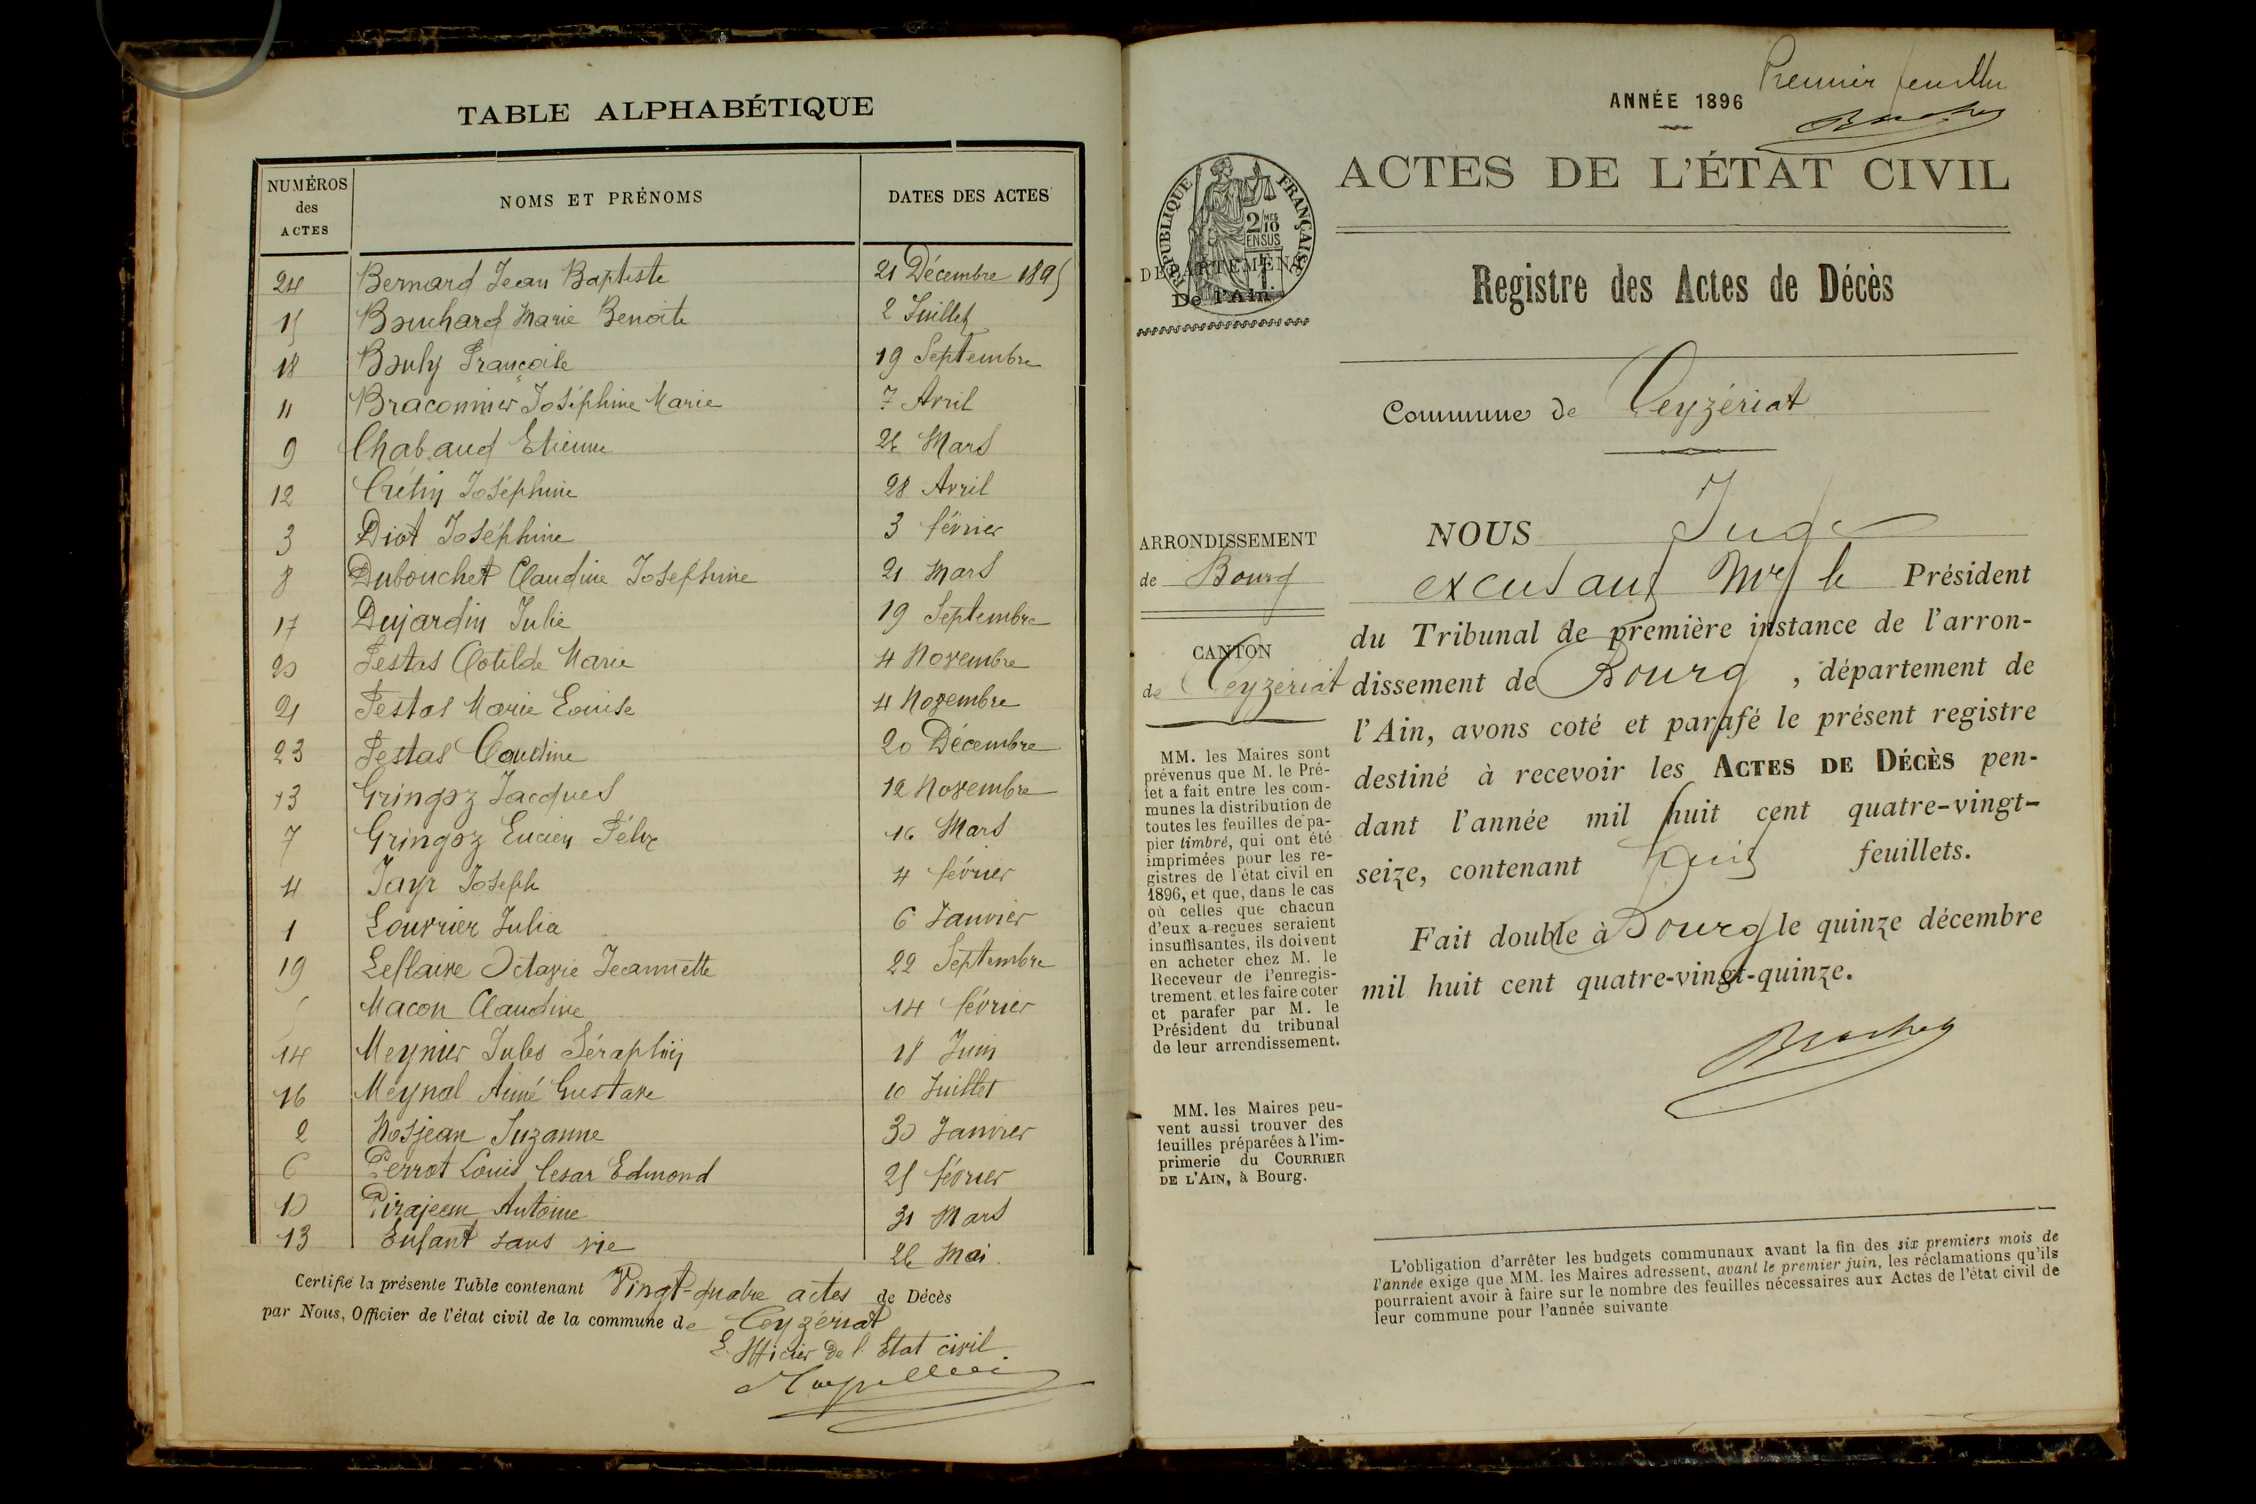 TABLE ALPHABÉTIQUE
NUMÉROS des ACTES NOMS ET PRÉNOMS DATES DES ACTES
24 Bernard Jean Baptiste 21 Décembre 1895
15 Bouchard Marie Benoite 2 Juillet
18 Bouly Françoise 19 Septembre
11 Braconnier Joséphine Marie 7 Avril
9 Chabaud Etienne 26 Mars
12 Crétin Joséphine 28 Avril
3 Diot Joséphine 3 février
8 Dubouchet Claudine Josephine 21 Mars
17 Dujardin Julie 19 Septembre
20 Festas Clotilde Marie 4 Novembre
21 Festas Marie Louise 4 Novembre
23 Festas Claudine 20 Décembre
13 Gringoz Jacques 12 Novembre
7 Gringoz Lucien Félix 16 Mars
4 Jayr Joseph 4 février
1 Louvrier Julia 6 Janvier
19 Leflaive Octavie Jeannette 22 Septembre
Macon Claudine 14 février
14 Meynier Jules Séraphin 18 Juin
16 Meynal Aimé Gustave 10 Juillet
2 Nosjean Suzanne 30 Janvier
6 Perrot Louis Cesar Edmond 25 février
10 Pirajean Antoine 31 Mars
13 Enfant sans vie 26 Mai
Certifié la présente Table contenant Vingt-quatre actes de Décès
par Nous, Officier de l'état civil de la commune de Ceyzériat
L'Officier de l'Etat civil
Premier feuillet
ANNÉE 1896
ACTES DE L'ÉTAT CIVIL
RÉPUBLIQUE FRANÇAISE
2/10 MES EN SUS
DÉPARTEMENT
De l'Ain
Registre des Actes de Décès
Commune de Ceyzériat
ARRONDISSEMENT
de Bourg
CANTON
de Ceyzériat
MM. les Maires sont
prévenus que M. le Pré-
fet a fait entre les com-
munes la distribution de
toutes les feuilles de pa-
pier timbré, qui ont été
imprimées pour les re-
gistres de l'état civil en
1896, et que, dans le cas
où celles que chacun
d'eux a reçues seraient
insuffisantes, ils doivent
en acheter chez M. le
Receveur de l'enregis-
trement et les faire coter
et parafer par M. le
Président du tribunal
de leur arrondissement.
MM. les Maires peu-
vent aussi trouver des
feuilles préparées à l'im-
primerie du COURRIER
DE L'AIN, à Bourg.
NOUS Juge
excusant Mr le Président
du Tribunal de première instance de l'arron-
dissement de Bourg, département de
l'Ain, avons coté et parafé le présent registre
destiné à recevoir les ACTES DE DÉCÈS pen-
dant l'année mil huit cent quatre-vingt-
seize, contenant huit feuillets.
Fait double à Bourg le quinze décembre
mil huit cent quatre-vingt-quinze.
L'obligation d'arrêter les budgets communaux avant la fin des six premiers mois de
l'année exige que MM. les Maires adressent, avant le premier juin, les réclamations qu'ils
pourraient avoir à faire sur le nombre des feuilles nécessaires aux Actes de l'état civil de
leur commune pour l'année suivante